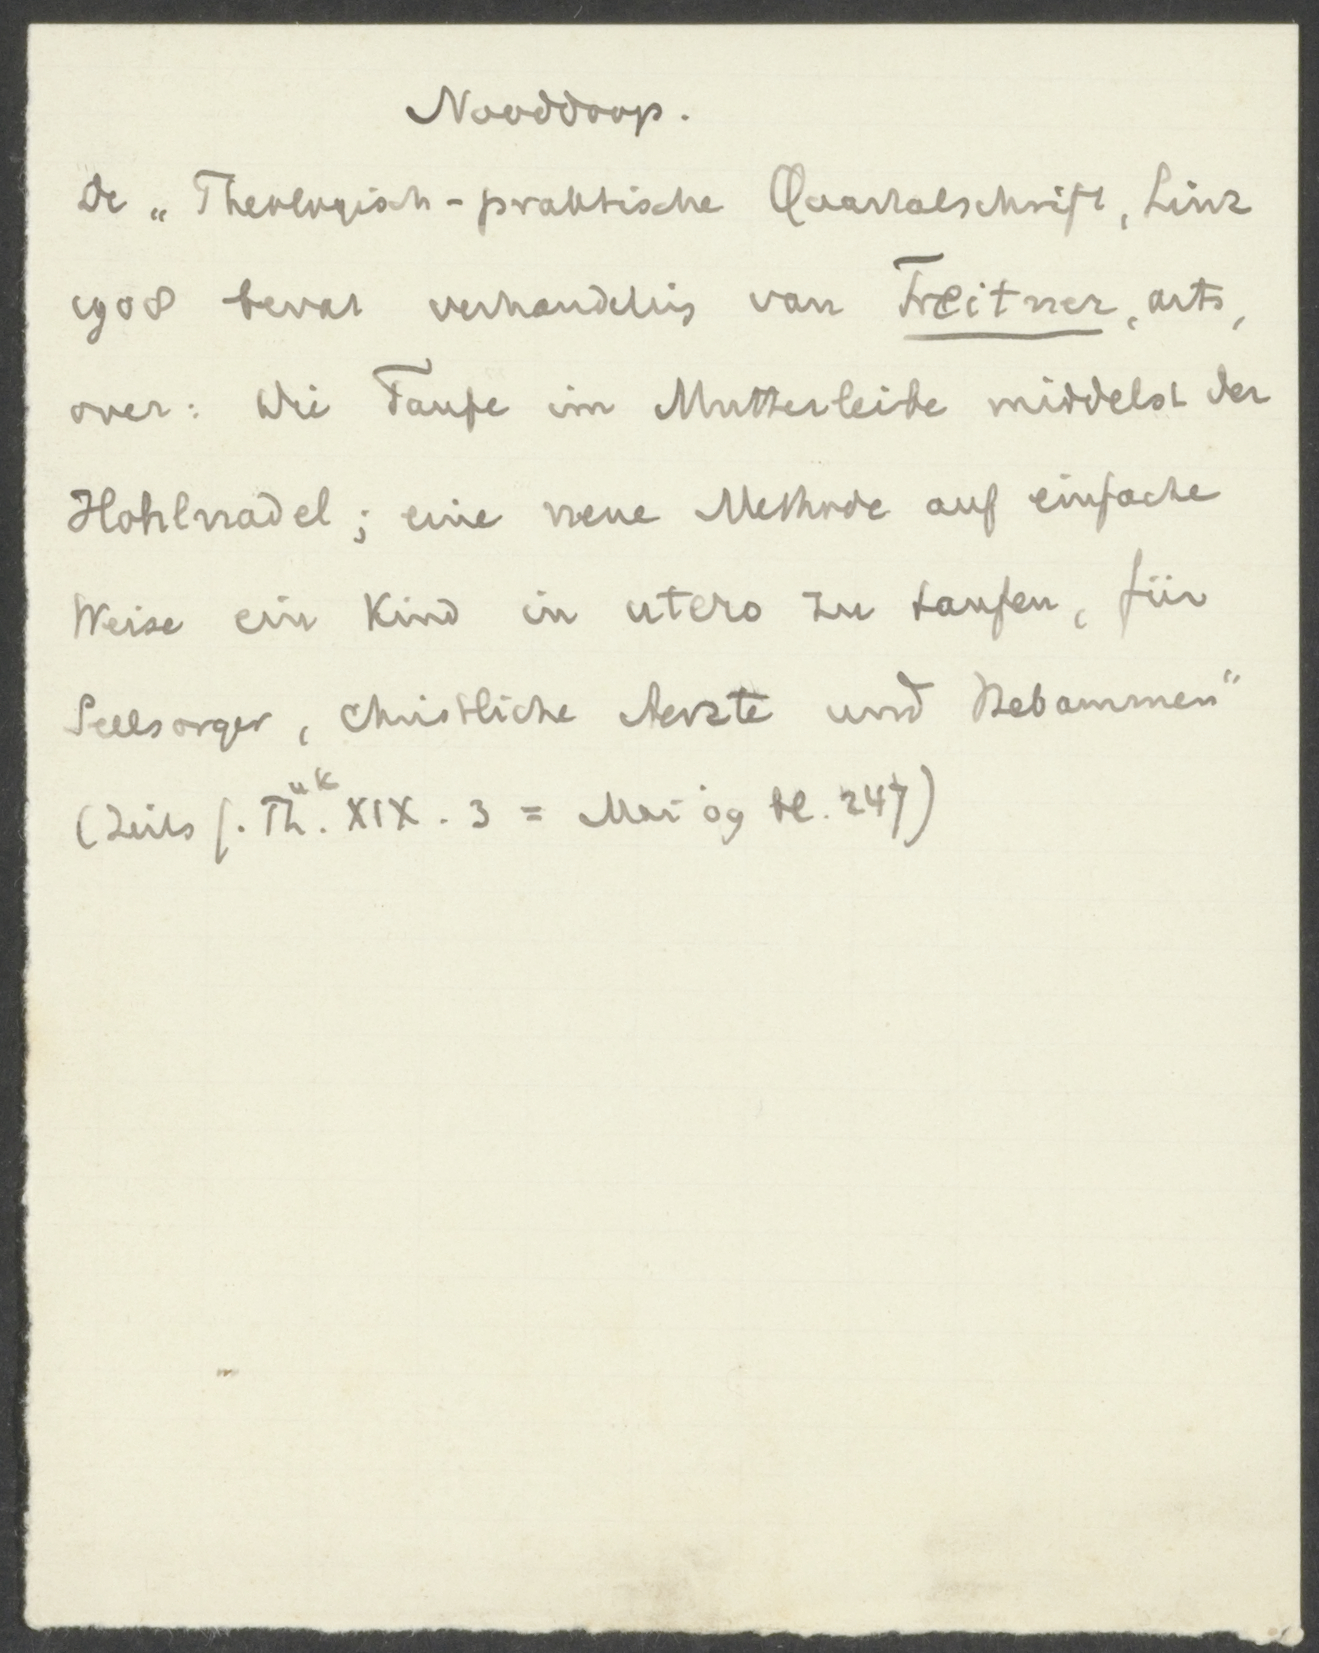 Nooddoop.
De „Theologisch-praktische Quartalschrift, Linz
1908 bevat verhandelis van Treitner, arts,
over: Die Taufe im Mutterleibe middelst der
Hohlnadel; eine neue Methode auf einfache
Weise ein Kind in utero zu taufen, für
Seelsorger, christliche Aerzte und Hebammen"
(Zeits f. Th. u K XIX. 3 = Mai 09 bl. 247)